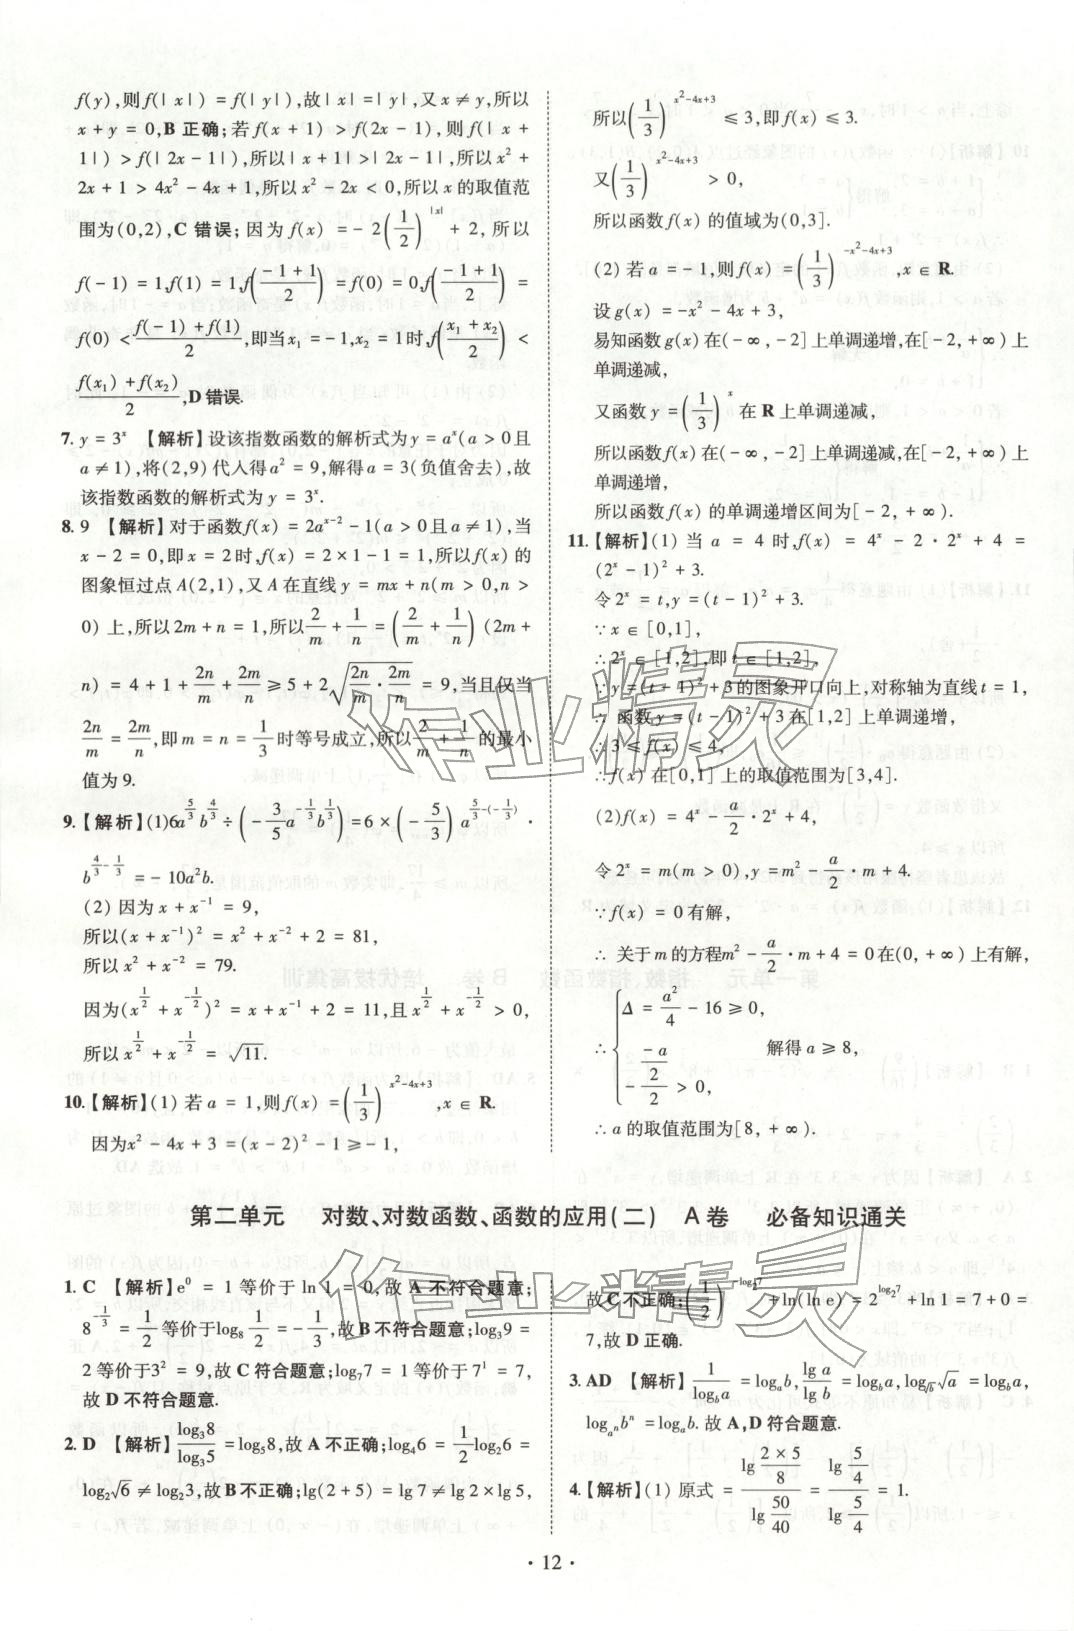 f(y),则f(|x|)=f(|y|),故|x|=|y|,又x≠y,所以
x+y=0,B正确;若f(x+1)>f(2x-1),则f(|x+
1|)>f(|2x-1|),所以|x+1|>|2x-1|,所以x²+
2x+1>4x²-4x+1,所以x²-2x<0,所以x的取值范
围为(0,2),C错误;因为f(x)=-2(1/2)^|x|+2,所以
f(-1)=1,f(1)=1,f((-1+1)/2)=f(0)=0,f((-1+1)/2)=
f(0)<(f(-1)+f(1))/2,即当x₁=-1,x₂=1时,f((x₁+x₂)/2)<
(f(x₁)+f(x₂))/2,D错误.
7. y=3ˣ 【解析】设该指数函数的解析式为y=aˣ(a>0且
a≠1),将(2,9)代入得a²=9,解得a=3(负值舍去),故
该指数函数的解析式为y=3ˣ.
8. 9 【解析】对于函数f(x)=2a^(x-2)-1(a>0且a≠1),当
x-2=0,即x=2时,f(x)=2×1-1=1,所以f(x)的
图象恒过点A(2,1),又A在直线y=mx+n(m>0,n>
0)上,所以2m+n=1,所以2/m+1/n=(2/m+1/n)(2m+
n)=4+1+2n/m+2m/n≥5+2√(2n/m·2m/n)=9,当且仅当
2n/m=2m/n,即m=n=1/3时等号成立,所以2/m+1/n的最小
值为9.
9.【解析】(1)6a^(5/3)b^(4/3)÷(-3/5 a^(-1/3)b^(1/3))=6×(-5/3)a^(5/3-(-1/3))·
b^(4/3-1/3)=-10a²b.
(2)因为x+x⁻¹=9,
所以(x+x⁻¹)²=x²+x⁻²+2=81,
所以x²+x⁻²=79.
因为(x^(1/2)+x^(-1/2))²=x+x⁻¹+2=11,且x^(1/2)+x^(-1/2)>0,
所以x^(1/2)+x^(-1/2)=√11.
10.【解析】(1)若a=1,则f(x)=(1/3)^(x²-4x+3),x∈R.
因为x²-4x+3=(x-2)²-1≥-1,
所以(1/3)^(x²-4x+3)≤3,即f(x)≤3.
又(1/3)^(x²-4x+3)>0,
所以函数f(x)的值域为(0,3].
(2)若a=-1,则f(x)=(1/3)^(-x²-4x+3),x∈R.
设g(x)=-x²-4x+3,
易知函数g(x)在(-∞,-2]上单调递增,在[-2,+∞)上
单调递减,
又函数y=(1/3)ˣ在R上单调递减,
所以函数f(x)在(-∞,-2]上单调递减,在[-2,+∞)上
单调递增,
所以函数f(x)的单调递增区间为[-2,+∞).
11.【解析】(1)当a=4时,f(x)=4ˣ-2·2ˣ+4=
(2ˣ-1)²+3.
令2ˣ=t,y=(t-1)²+3.
∵x∈[0,1],
∴2ˣ∈[1,2],即t∈[1,2],
∵y=(t-1)²+3的图象开口向上,对称轴为直线t=1,
∴函数y=(t-1)²+3在[1,2]上单调递增,
∴3≤f(x)≤4,
∴f(x)在[0,1]上的取值范围为[3,4].
(2)f(x)=4ˣ-a/2·2ˣ+4,
令2ˣ=m(m>0),y=m²-a/2·m+4.
∵f(x)=0有解,
∴关于m的方程m²-a/2·m+4=0在(0,+∞)上有解,
∴{Δ=a²/4-16≥0, -(-a/2)/2>0, 解得a≥8,
∴a的取值范围为[8,+∞).
第二单元 对数、对数函数、函数的应用(二) A卷 必备知识通关
1. C 【解析】e⁰=1等价于ln 1=0,故A不符合题意;
8^(-1/3)=1/2等价于log₈1/2=-1/3,故B不符合题意;log₃9=
2等价于3²=9,故C符合题意;log₇7=1等价于7¹=7,
故D不符合题意.
2. D 【解析】log₃8/log₃5=log₅8,故A不正确;log₄6=1/2log₂6=
log₂√6≠log₂3,故B不正确;lg(2+5)=lg 7≠lg 2×lg 5,
故C不正确;(1/2)^(log_(1/2)7)+ln(ln e)=2^(log₂7)+ln 1=7+0=
7,故D正确.
3. AD 【解析】1/log_b a=log_a b,lg a/lg b=log_b a,log_√b √a=log_b a,
log_(aⁿ)bⁿ=log_a b,故A,D符合题意.
4.【解析】(1)原式=lg(2×5/8)/lg(50/40)=lg(5/4)/lg(5/4)=1.
· 12 ·
作业精灵
作业精灵